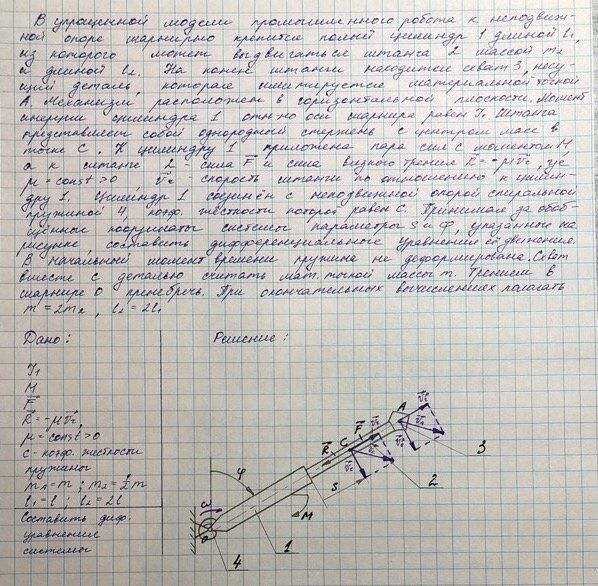 В упрощенной модели промышленного робота к неподвиж-
ной опоре шарнирно крепится полый цилиндр 1 длиной l₁,
из которого может выдвигаться штанга 2 массой m₂
и длиной l₂. На конце штанги находится схват 3, несу-
щий деталь, которая имитируется материальной точкой
А. Механизм расположен в горизонтальной плоскости. Момент
инерции цилиндра 1 отн-но оси шарнира равен J₁. Штанга
представляет собой однородный стержень с центром масс в
точке С. К цилиндру 1 приложена пара сил с моментом M,
а к штанге 2 - сила F и сила вязкого трения R = -μV̄r, где
μ = const > 0 V̄r - скорость штанги по отношению к цилин-
дру 1. Цилиндр 1 соединён с неподвижной опорой спиральной
пружиной 4, коэф. жесткости которой равен С. Принимая за обоб-
щенные координаты системы параметры S и φ, указанные на
рисунке, составить дифференциальные уравнения её движения.
В начальный момент времени пружина не деформирована. Схват
вместе с деталью считать мат. точкой массы m. Трением в
шарнире О пренебречь. При окончательных вычислениях полагать
m = 2m₂, l₂ = 2l₁
Дано:
Решение:
J₁
M
F̄
R̄ = -μV̄r,
μ = const > 0
c - коэф. жесткости
пружины
mA = m ; m₂ = ½m
l₁ = l ; l₂ = 2l
Составить диф.
уравнение
системы
φ
R̄
C
F̄
A
S
M
O
1
2
3
4